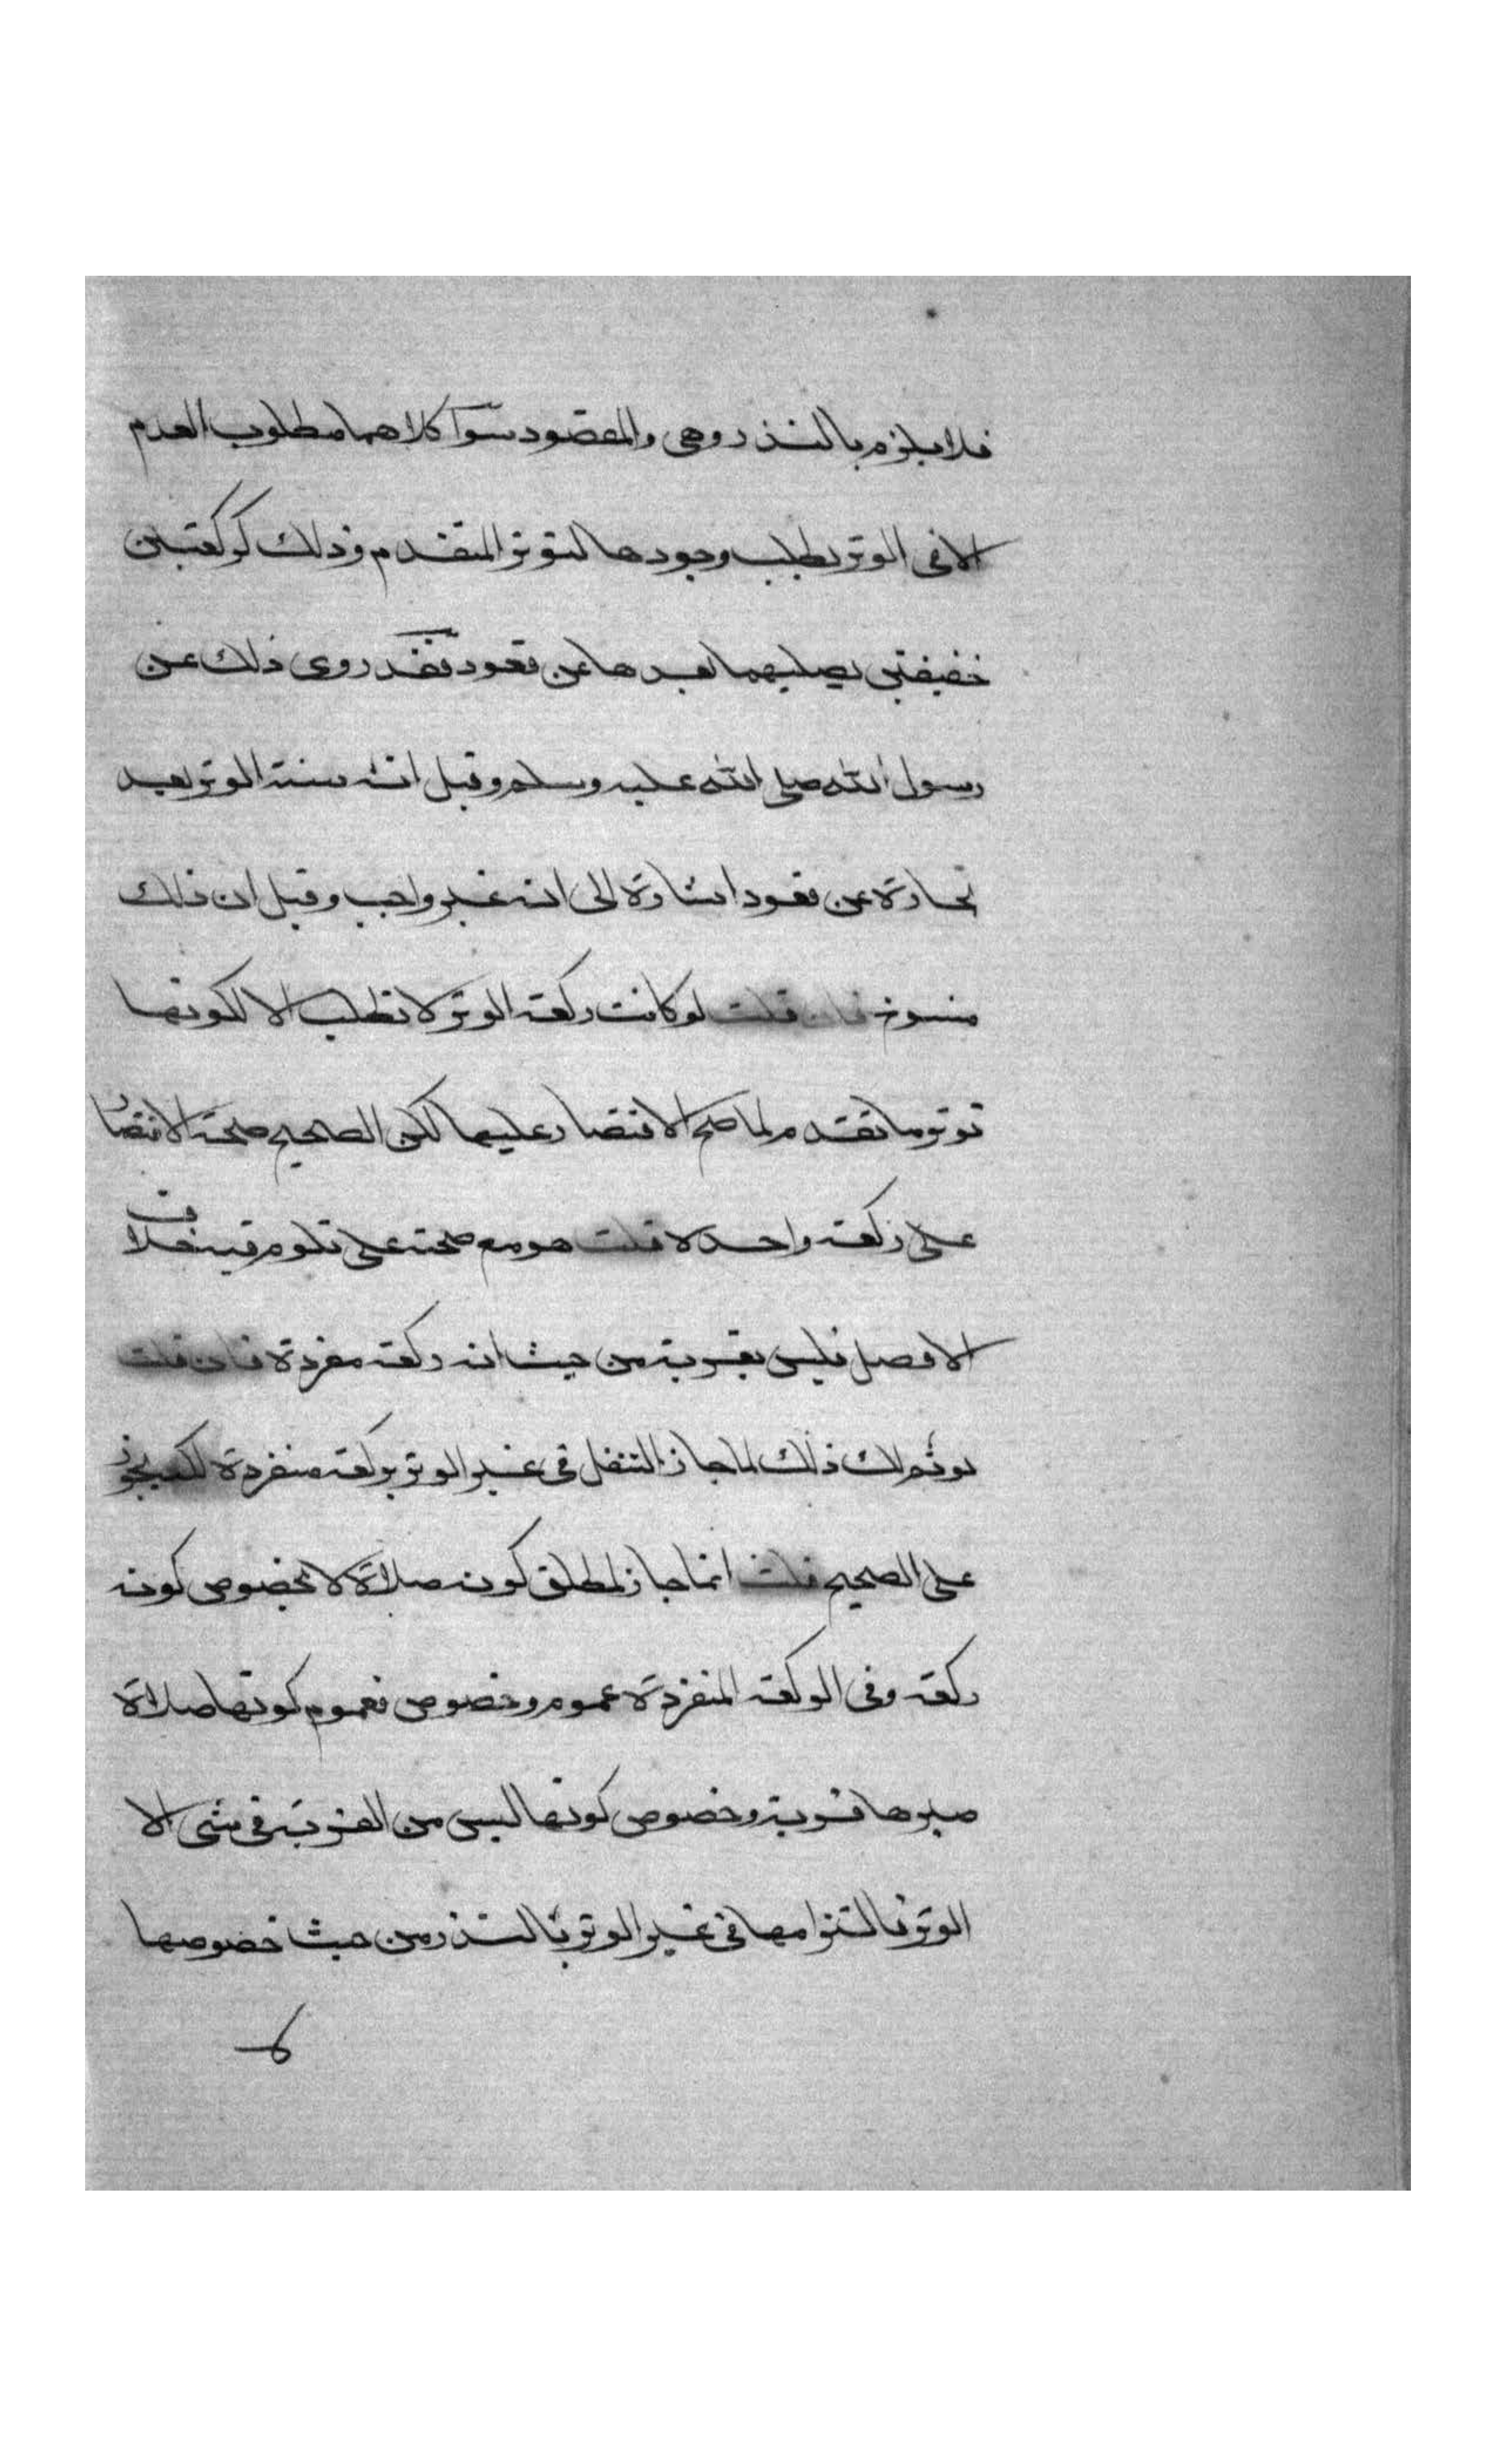 فلا يلزم بالنذر وهي والمقصود سوآ كلاهما مطلوب العدم
الا في الوتر يطلب وجودها لتوتر المتقدم وذلك كركعتين
خفيفتين يصليهما بعدها عن قعود فقد روى ذلك عن
رسول الله صلى الله عليه وسلم وقيل انه سنة الوتر بعيد
عن قعود اشارة الى انه غير واجب وقيل ان ذلك
منسوخ فان قلت لو كانت ركعة الوتر لا تطلب الا لكونها
توتر ما تقدم لما صح الاقتصار عليها لكن الصحيح صحة الاقتصار
على ركعة واحدة قلت هو مع صحته على تلوم فيه خلاف
الافضل فليس بقربة من حيث انه ركعة مفردة فان قلت
لو تم لك ذلك لما جاز التنفل في غير الوتر بركعة منفردة لكنه يجوز
على الصحيح قلت انما جاز لمطلق كونه صلاة لا بخصوص كونه
ركعة وفي الركعة المنفردة عموم وخصوص فعموم كونها صلاة
صيرها قربة وخصوص كونها ليس من القربة في شي الا
الوتر فالتزامها في غير الوتر بالنذر من حيث خصوصها